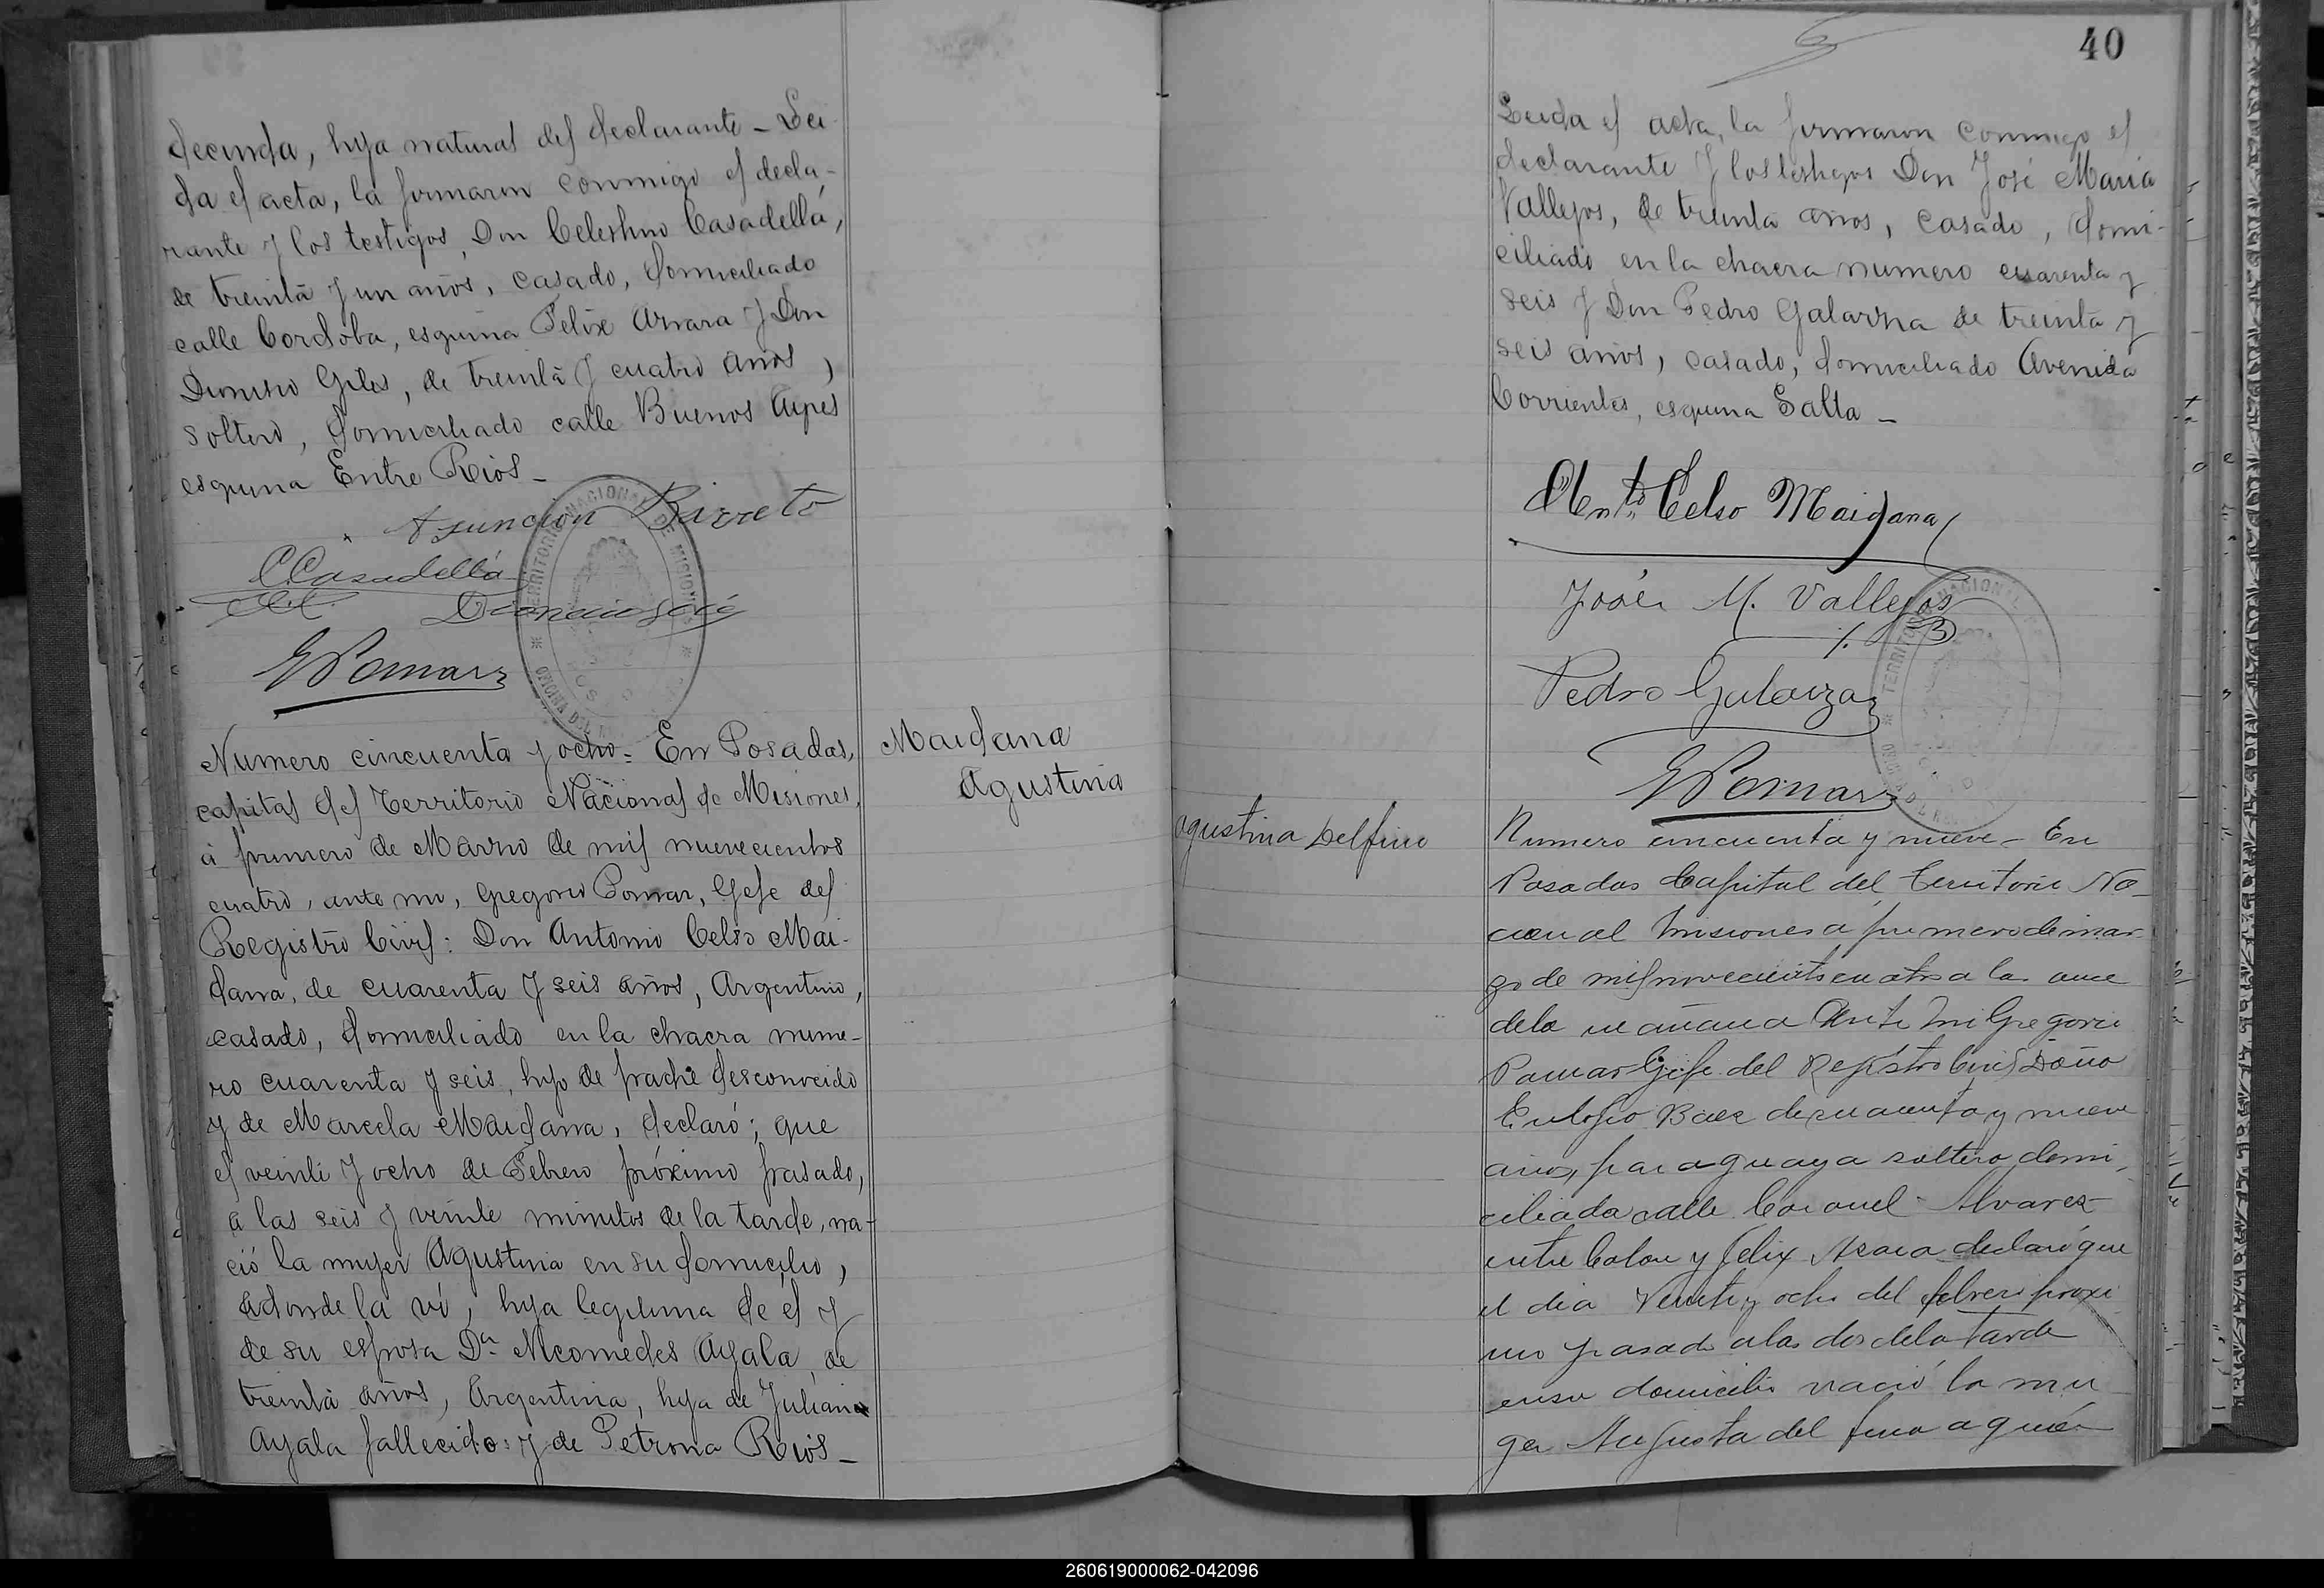 decinda, hija natural del declarante - Lei
da el acta, la firmaron conmigo el decla-
rante y los testigos, Don Celestino Casadellá,
de treinta y un años, casado, domiciliado
calle Cordoba, esquina Felix Azara y Don
Dionisio Giles, de treinta y cuatro años,
soltero, domiciliado calle Buenos Ayres
esquina Entre Rios -
Asuncion Barreto
C. Casadellá
EPomar
Numero cincuenta y ocho - En Posadas,
capital del Territorio Nacional de Misiones,
á primero de Marzo de mil nuevecientos
cuatro, ante mi, Gregorio Pomar, Gefe del
Registro Civil: Don Antonio Celso Mai-
dana, de cuarenta y seis años, Argentino,
casado, domiciliado en la chacra nume-
ro cuarenta y seis, hijo de padre desconocido
y de Marcela Maidana, declaró; que
el veinti y ocho de Febrero próximo pasado,
a las seis y veinte minutos de la tarde, na-
ció la mujer Agustina en su domicilio,
adonde la ví, hija legitima de él y
de su esposa Da. Nicomedes Ayala, de
treinta años, Argentina, hija de Juliana
Ayala fallecido: y de Petrona Rios -
Maidana
Agustina
40
Leida el acta, la firmaron conmigo el
declarante y los testigos Don José Maria
Vallejos, de treinta años, casado, domi-
ciliado en la chacra numero cuarenta y
seis y Don Pedro Galarza de treinta y
seis años, casado, domiciliado Avenida
Corrientes, esquina Salta -
Anto. Celso Maidana
José M. Vallejos
Pedro Galarza
EPomar
Agustina Delfino
Numero cincuenta y nueve - En
Posadas Capital del Territorio Na-
cional Misiones a primero de mar-
zo de mil novecientos cuatro a las once
de la mañana Ante Mi Gregorio
Pomar Gefe del Registro Civil Doña
Eulogio Baez de cuarenta y nueve
años, paraguaya soltera domi-
ciliada calle Coronel Alvarez
entre Colon y Felix Azara declaró que
el dia Veinte y ocho del febrero proxi
mo pasado a las dos de la tarde
en su domicilio nació la mu
ger Augusta del fina a quién
260619000062-042096